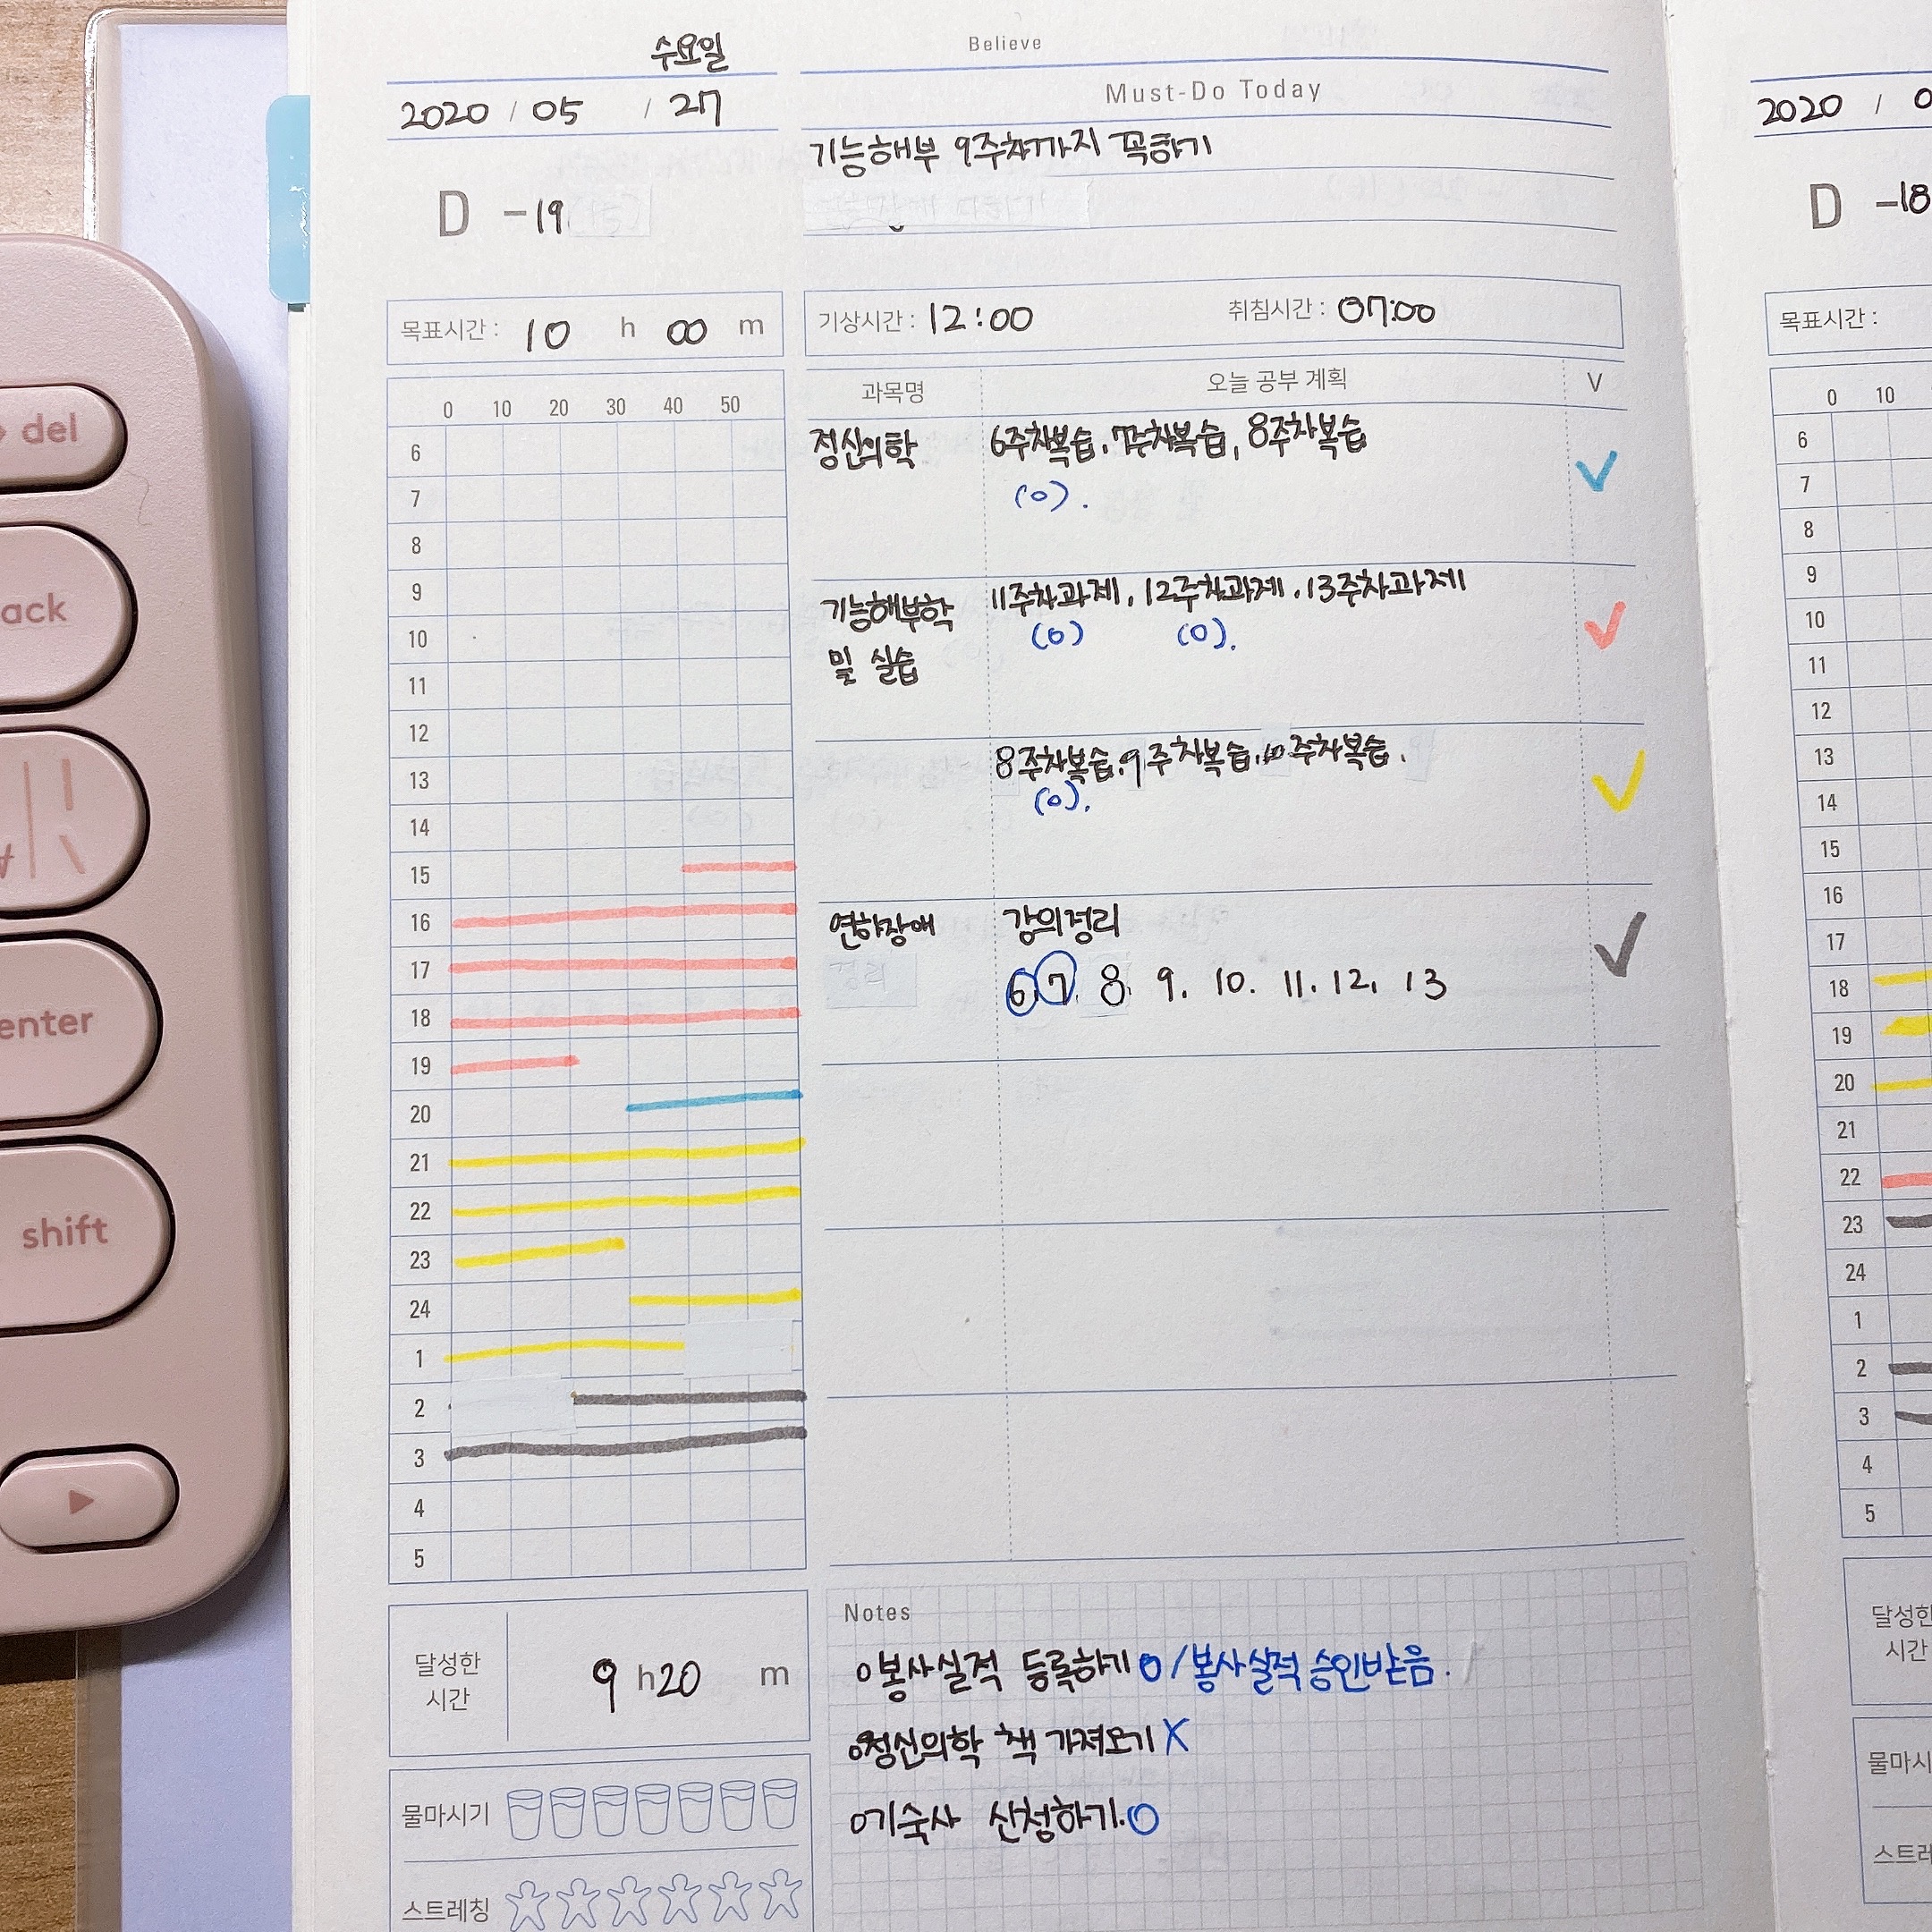 수요일
Believe
2020 / 05 / 27
Must-Do Today
기능해부 9주차까지 꼭하기
D -19
목표시간 : 10 h 00 m
기상시간 : 12:00 취침시간 : 07:00
과목명 오늘 공부 계획 V
0 10 20 30 40 50
정신의학 6주차복습, 7주차복습, 8주차복습
(0).
기능해부학 11주차과제, 12주차과제, 13주차과제
(0) (0).
및 실습
8주차복습, 9주차복습, 10주차복습.
(0).
연하장애 강의정리
6 7. 8. 9. 10. 11. 12. 13
6
7
8
9
10
11
12
13
14
15
16
17
18
19
20
21
22
23
24
1
2
3
4
5
달성한
시간
9 h 20 m
물마시기
스트레칭
Notes
o봉사실적 등록하기 O / 봉사실적 승인받음.
o정신의학 책 가져오기 X
o기숙사 신청하기. O
del
ack
enter
shift
2020 / 0
D -18
목표시간 :
0 10
6
7
8
9
10
11
12
13
14
15
16
17
18
19
20
21
22
23
24
1
2
3
4
5
달성한
시간
물마시
스트레